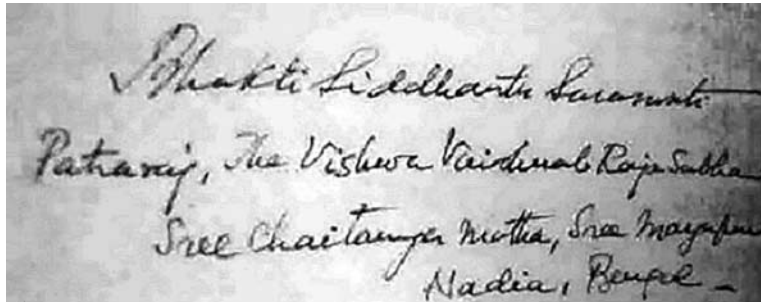 Bhakti Siddhanta Saraswati
Patraraj, The Vishwa Vaishnab Raja Sabha
Sree Chaitanya Matha, Sree Mayapur
Nadia, Bengal –